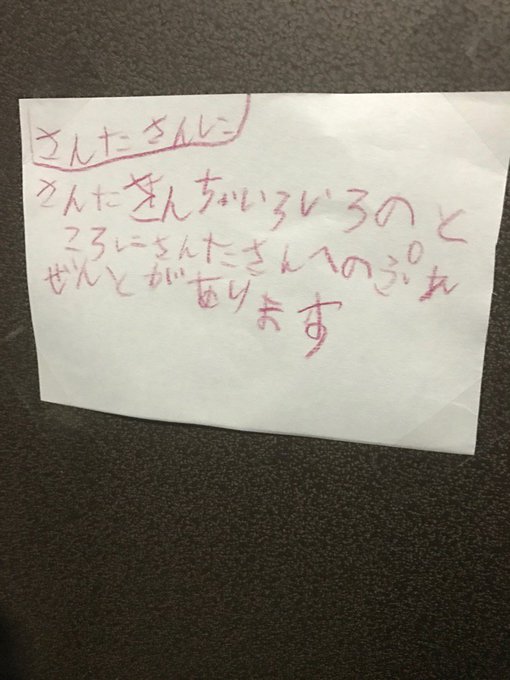 さんたさんに
さんたさんちゃいろいろのと
ころにさんたさんへのぷれ
ぜんとがあり
ます